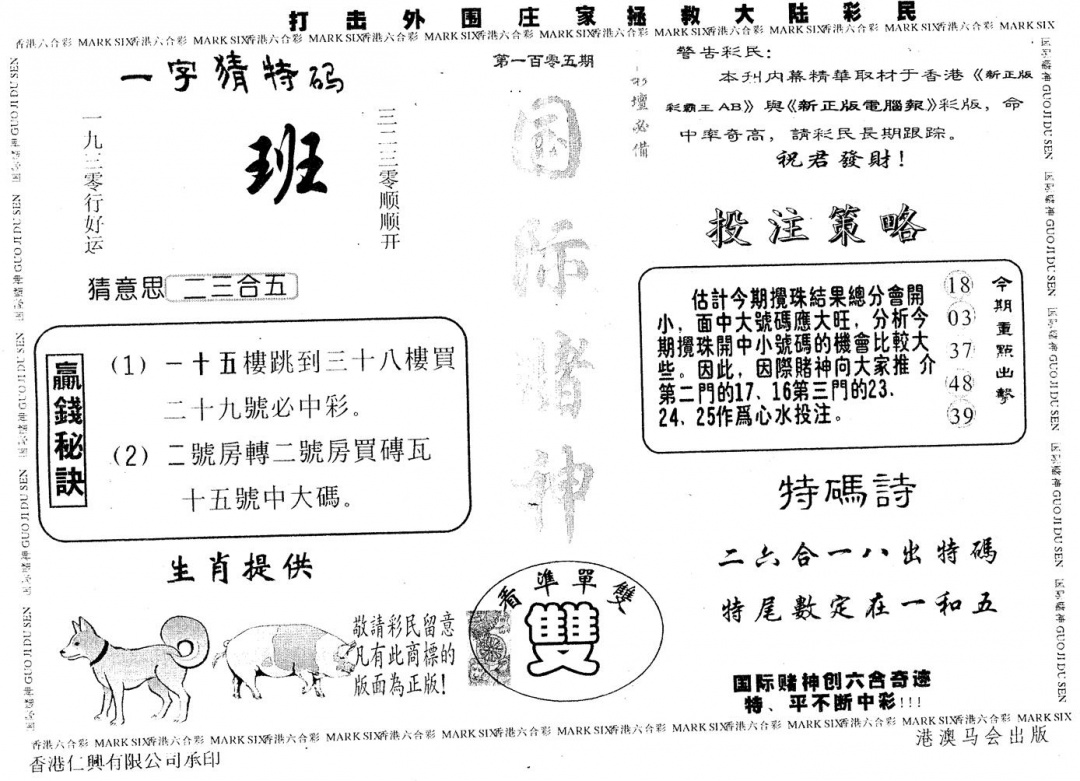 打击外围庄家拯救大陆彩民
香港六合彩 MARK SIX香港六合彩 MARK SIX香港六合彩 MARK SIX香港六合彩 MARK SIX香港六合彩 MARK SIX香港六合彩 MARK SIX香港六合彩 MARK SIX香港六合彩 MARK SIX香港六合彩 MARK SIX
国际赌神 GUO JI DU SEN 国际赌神 GUO JI DU SEN 国际赌神 GUO JI DU SEN 国际赌神 GUO JI DU SEN 国际赌神 GUO JI DU SEN
一字猜特码
一九三零行好运
班
三二三零顺顺开
猜意思 二三合五
贏錢秘訣
(1) 一十五樓跳到三十八樓買
二十九號必中彩。
(2) 二號房轉二號房買磚瓦
十五號中大碼。
生肖提供
敬請彩民留意
凡有此商標的
版面為正版!
第一百零五期
国际赌神
彩壇必備
看準單雙
雙
警告彩民:
本刊内幕精華取材于香港《新正版
彩霸王 AB》與《新正版電腦報》彩版，命
中率奇高，請彩民長期跟踪。
祝君發財!
投注策略
估計今期攪珠結果總分會開
小，面中大號碼應大旺，分析今
期攪珠開中小號碼的機會比較大
些。因此，因際賭神向大家推 介
第二門的17、16第三門的23、
24、25作爲心水投注。
18
03
37
48
39
今期重點出擊
特碼詩
二六合一八出特碼
特尾數定在一和五
国际赌神创六合奇速
特、平不断中彩!!!
国际赌神 GUO JI DU SEN 国际赌神 GUO JI DU SEN 国际赌神 GUO JI DU SEN 国际赌神 GUO JI DU SEN 国际赌神 GUO JI DU SEN
香港六合彩 MARK SIX香港六合彩 MARK SIX香港六合彩 MARK SIX香港六合彩 MARK SIX香港六合彩 MARK SIX香港六合彩 MARK SIX香港六合彩 MARK SIX香港六合彩 MARK SIX香港六合彩 MARK SIX
香港仁興有限公司承印
港澳马会出版